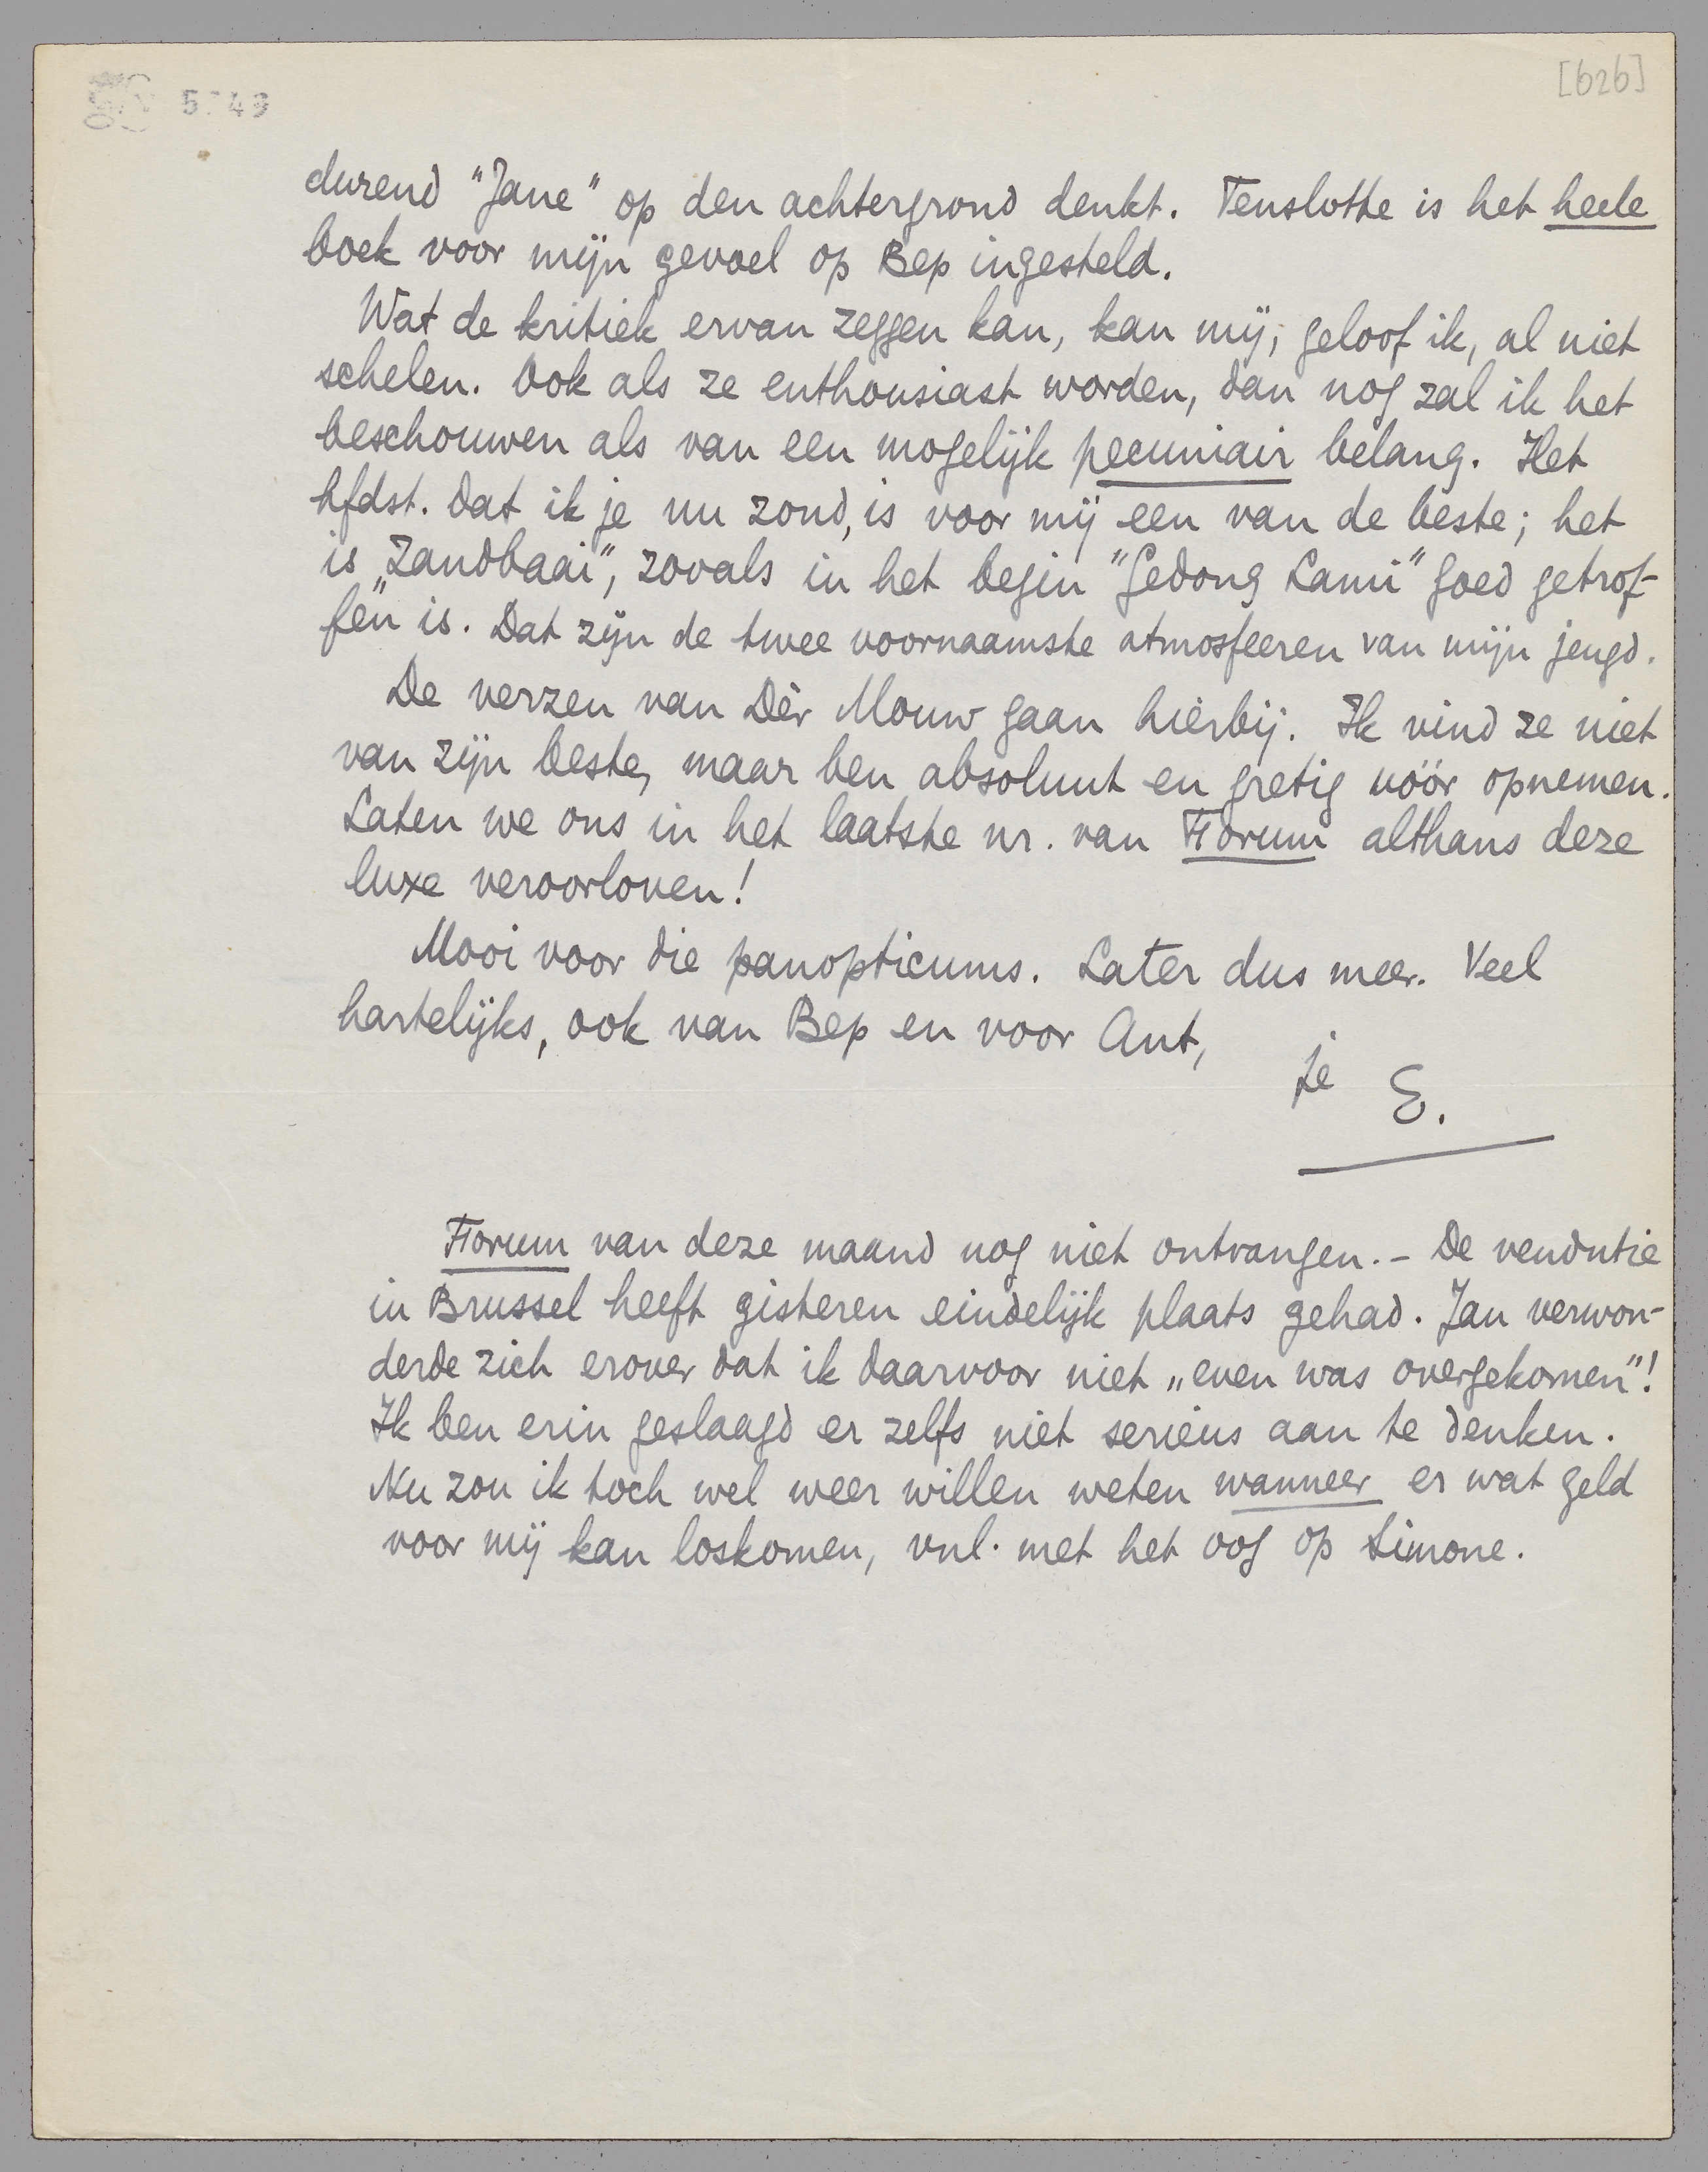 [626]
durend "Jane" op den achtergrond denkt. Tenslotte is het heele
boek voor mijn gevoel op Bep ingesteld.
Wat de kritiek ervan zeggen kan, kan mij, geloof ik, al niet
schelen. Ook als ze enthousiast worden, dan nog zal ik het
beschouwen als van een mogelijk pecuniair belang. Het
hfdst. dat ik je nu zond, is voor mij een van de beste; het
is „Zandbaai", zooals in het begin "Gedong Lami" goed getrof-
fen is. Dat zijn de twee voornaamste atmosfeeren van mijn jeugd.
De verzen van Dèr Mouw gaan hierbij. Ik vind ze niet
van zijn beste, maar ben absoluut en gretig vóór opnemen.
Laten we ons in het laatste nr. van Forum althans deze
luxe veroorloven!
Mooi voor die panopticums. Later dus meer. Veel
hartelijks, ook van Bep en voor Ant,
je E.
Forum van deze maand nog niet ontvangen. - De vendutie
in Brussel heeft gisteren eindelijk plaats gehad. Jan verwon-
derde zich erover dat ik daarvoor niet „even was overgekomen"!
Ik ben erin geslaagd er zelfs niet serieus aan te denken.
Nu zou ik toch wel weer willen weten wanneer er wat geld
voor mij kan loskomen, vnl. met het oog op Simone.